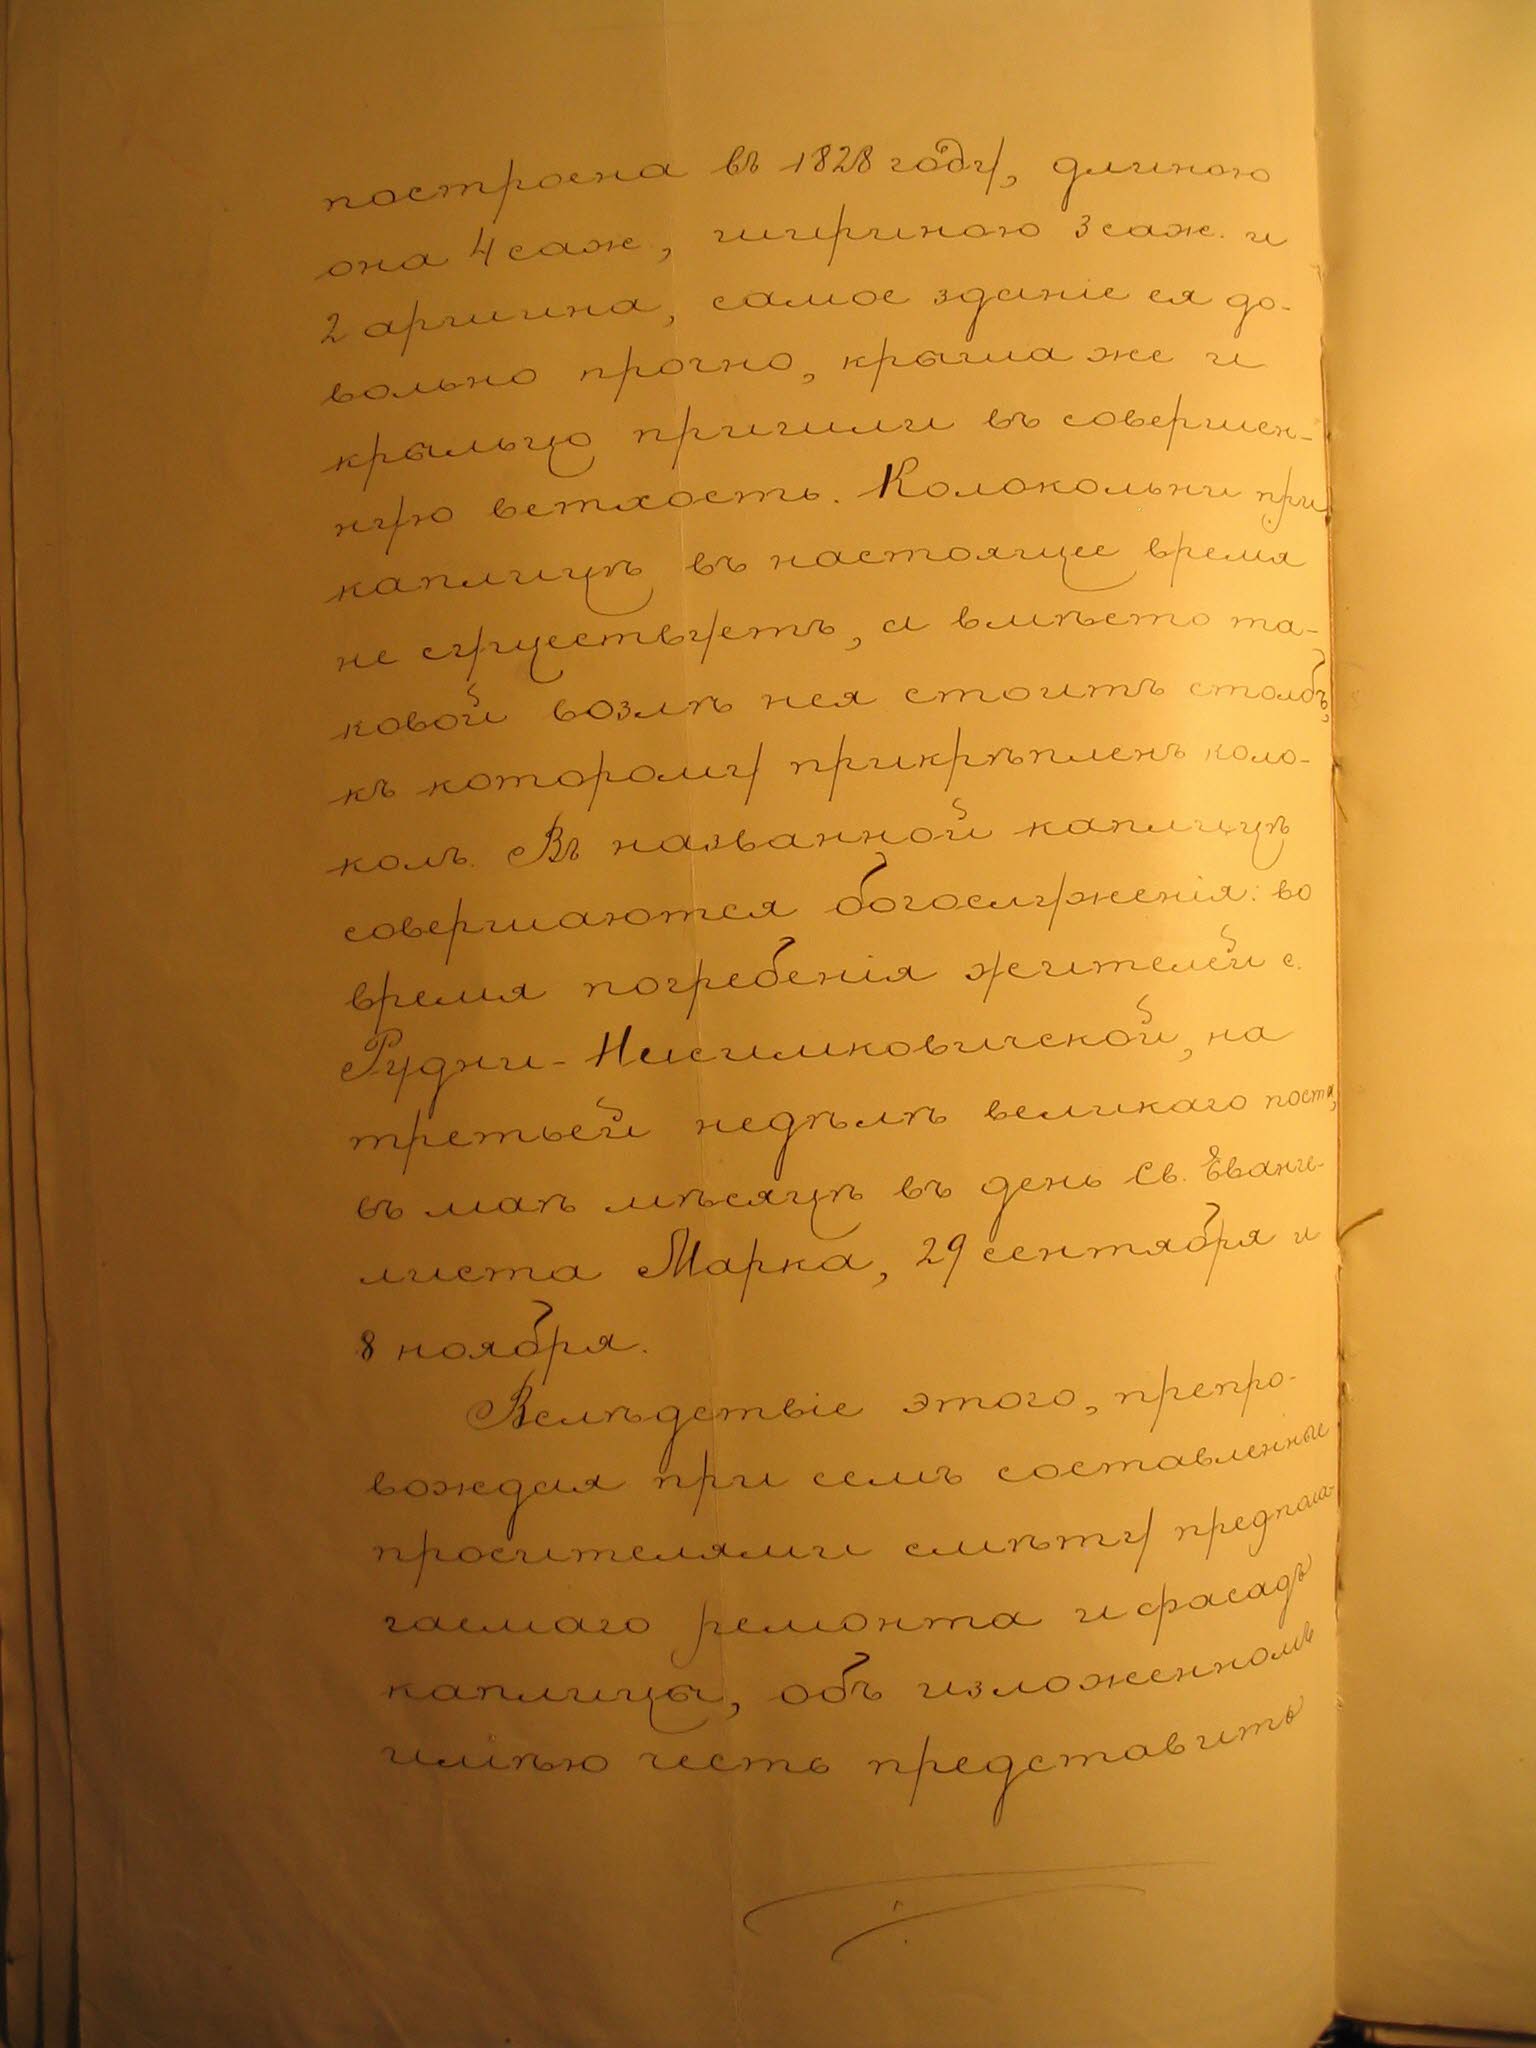 построена въ 1828 году, длиною
она 4 саж., шириною 3 саж. и
2 аршина, самое зданіе ея до-
вольно прочно, крыша же и
крыльцо пришли въ совершен-
ную ветхость. Колокольни при
каплицѣ въ настоящее время
не существуетъ, а вмѣсто та-
ковой возлѣ нея стоитъ столбъ,
къ которому прикрѣпленъ коло-
колъ. Въ названной каплицѣ
совершаются богослуженія: во
время погребенія жителей с.
Рудни-
третьей недѣлѣ великаго поста,
въ маѣ мѣсяцѣ въ день Св. Еванге-
листа Марка, 29 сентября и
8 ноября.
Вслѣдствіе этого, препро-
вождая при семъ составленные
просителями смѣту предпола-
гаемаго ремонта и фасадъ
каплицы, объ изложенномъ
имѣю честь представить